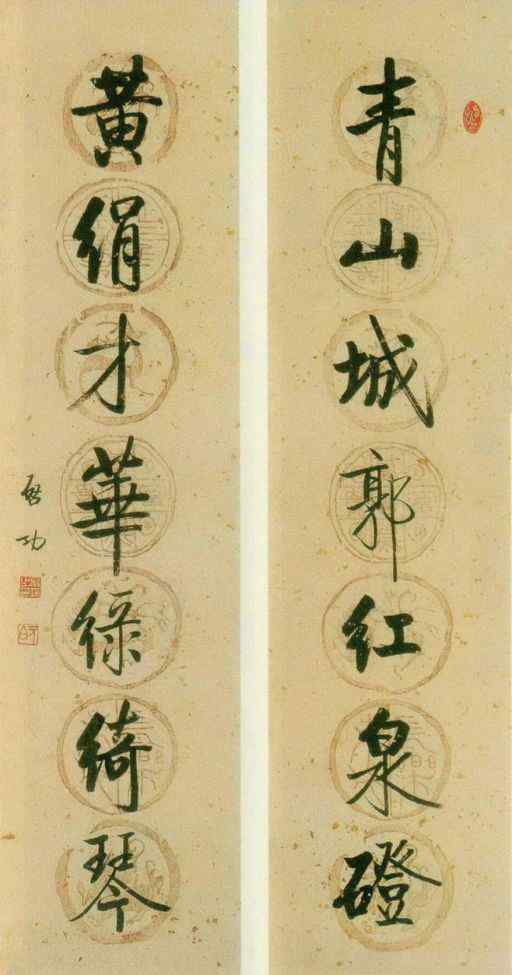 青山城郭紅泉磴
黃絹才華綠綺琴
啓功